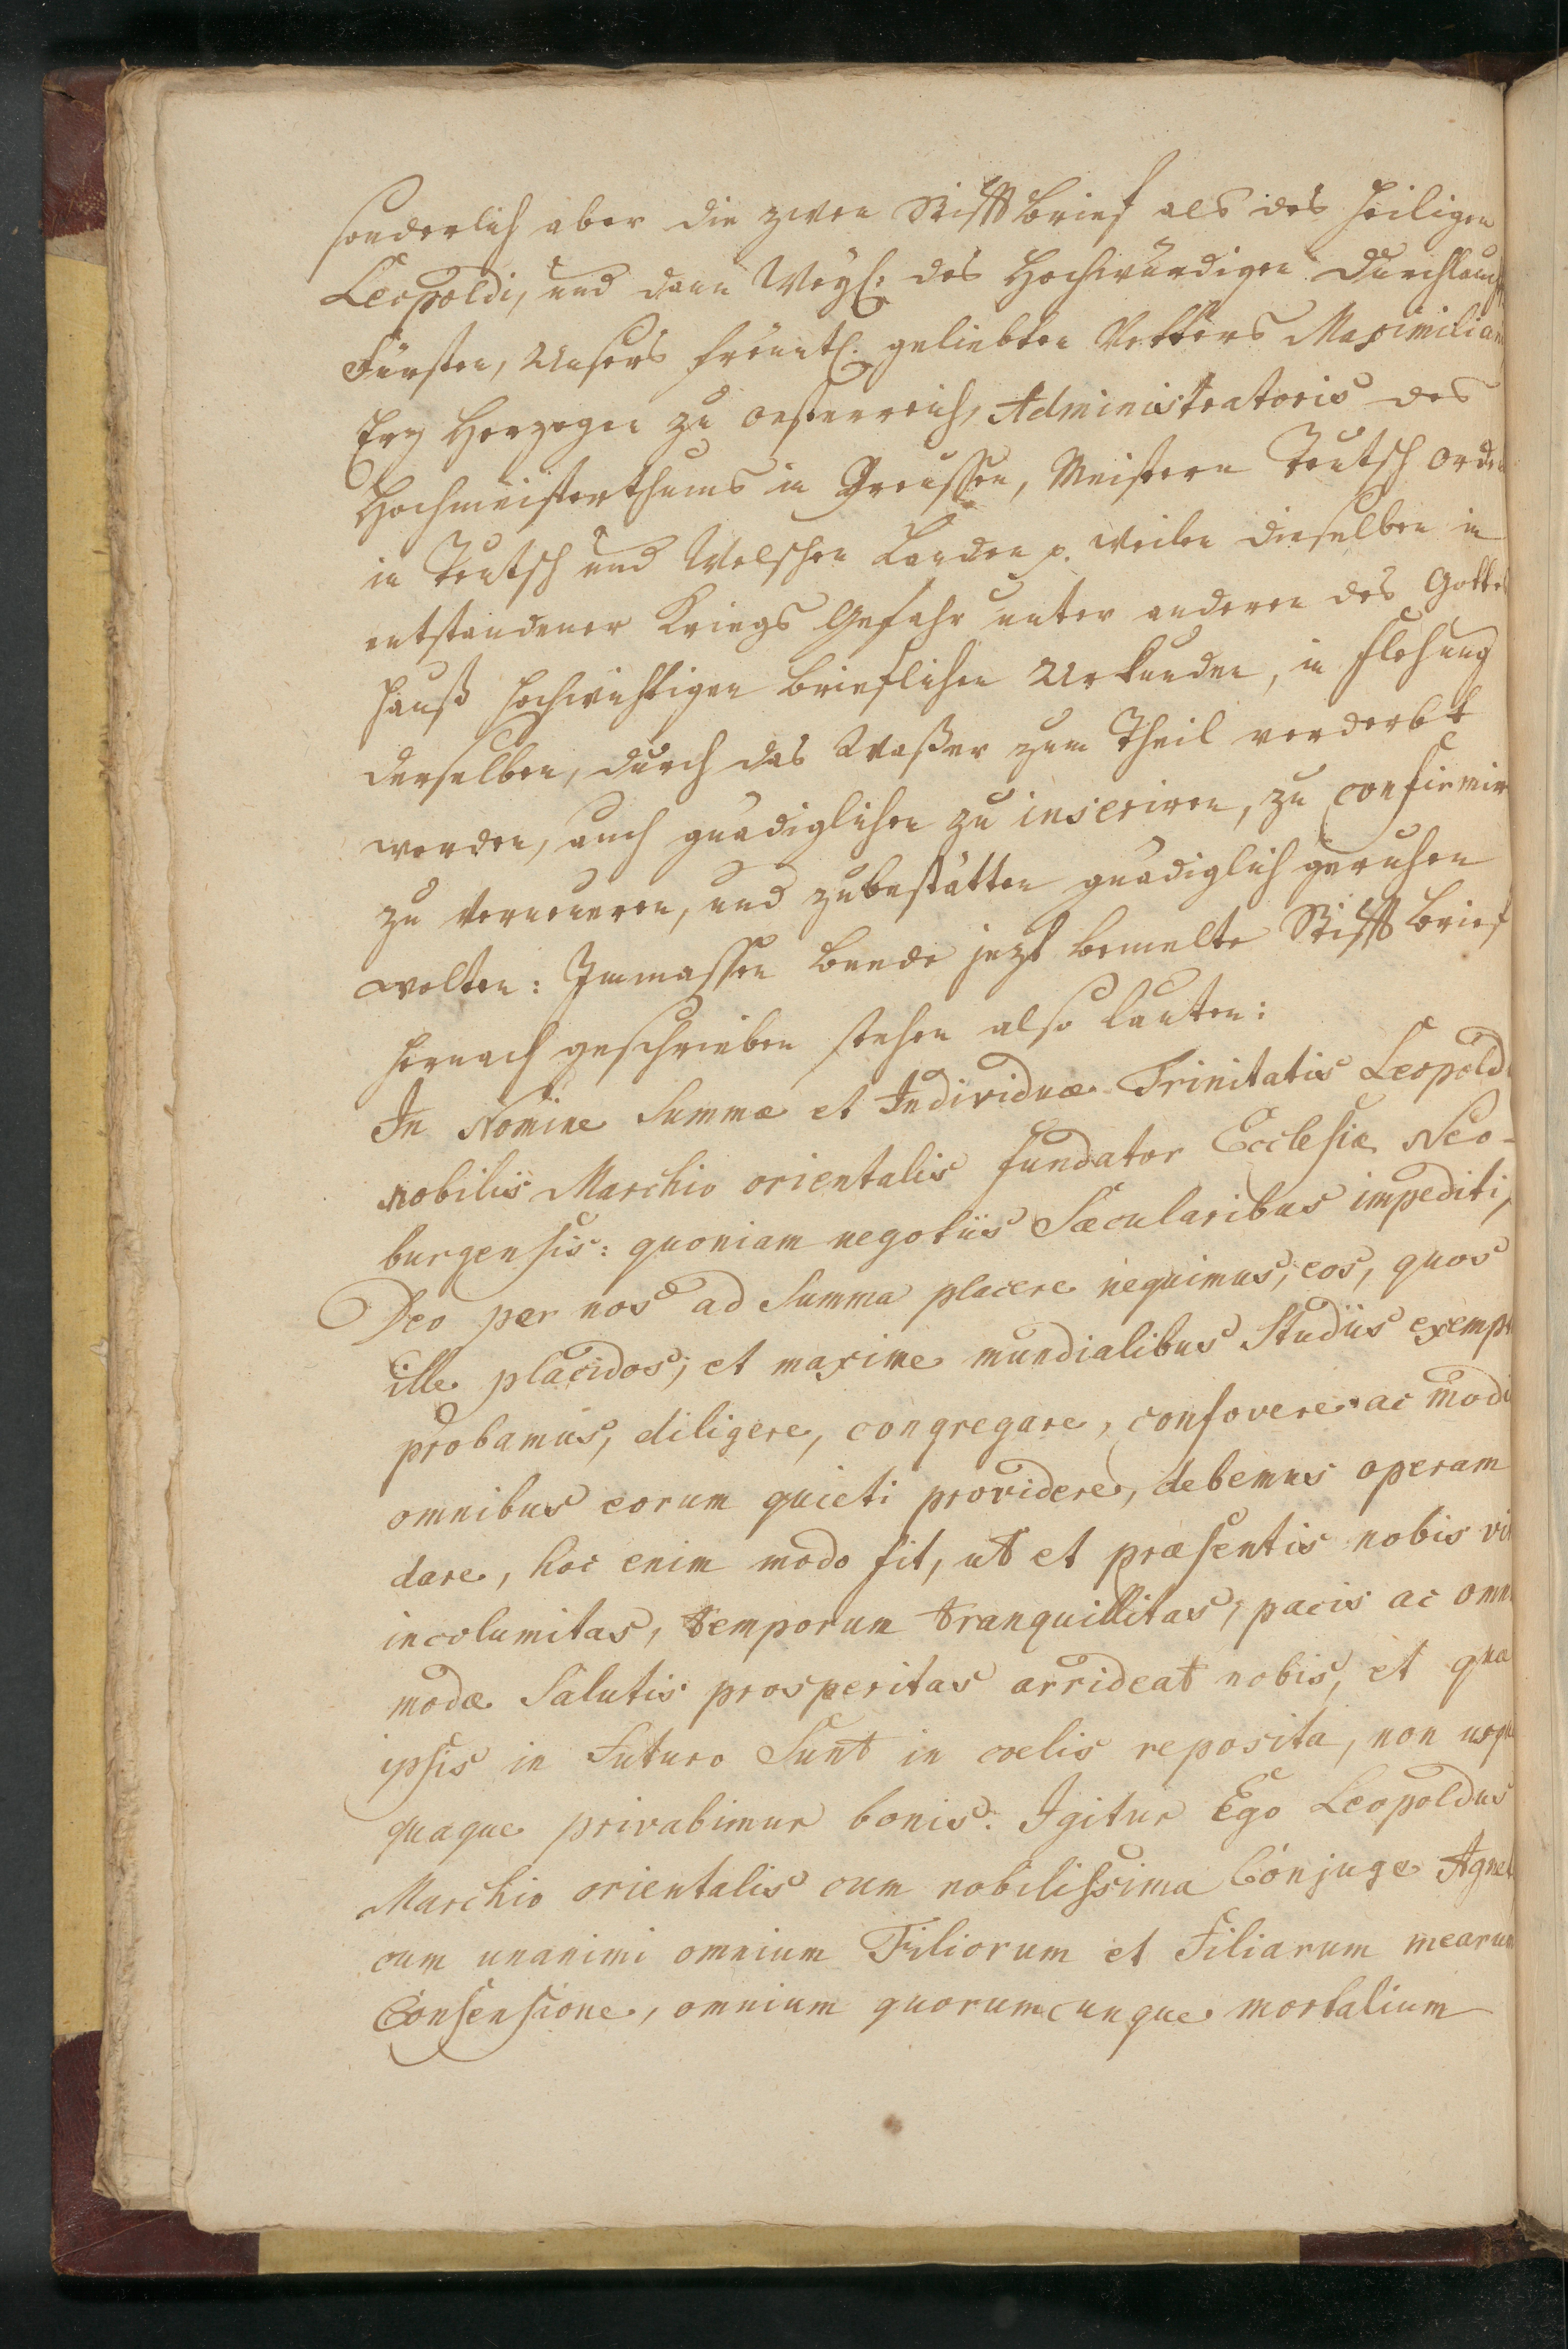 sonderlich aber die zween Stifft brief als des heiligen
Leopoldi, und dann Weyl: des Hochwürdigen Durchlauch
Fürsten, Unsers freüntl. geliebten Vetters Maximilian
Erz Herzogen zu Oesterreich, Administratoris des
Hochmeisterthums in Preussen, Meistern Teutsch Orden
in Teutsch und Welschen Landen p. weilen dieselben in
entstandener Kriegs Gefahr unter anderen des Gottes
hauß hochwichtigen brieflichen Urkunden, in flehung
derselben, durch das Waßer zum Theil verderbt
worden, auch gnädiglichen zu inseriren, zu confirmir
zu verneueren, und zubestätten gnädiglich geruhen
wolten: Immassen beede jezt bemelte Stifft brief
hernach geschrieben stehen also lauten:
In Nomine Summæ et Individuæ Trinitatis Leopold
nobilis Marchio orientalis fundator Ecclesiæ Neo-
burgensis: quoniam negotiis Sæcularibus impediti,
Deo per nos ad Summa placere nequimus, eos, quos
ille placidos, et maxime mundialibus Studiis exempt
probamus, diligere, congregare, confovere ac modi
omnibus eorum quieti providere, debemus operam
dare, hoc enim modo fit, ut et præsentis nobis vit
incolumitas, temporum tranquillitas, pacis ac omni
modæ Salutis prosperitas arrideat nobis, et quæ
ipsis in Futuro Sunt in cœlis reposita, non usque
quaque privabimur bonis. Igitur Ego Leopoldus
Marchio orientalis cum nobilissima Conjuge Agnet
cum unanimi omnium Filiorum et Filiarum mearum
Consensione, omnium quorumcunque mortalium